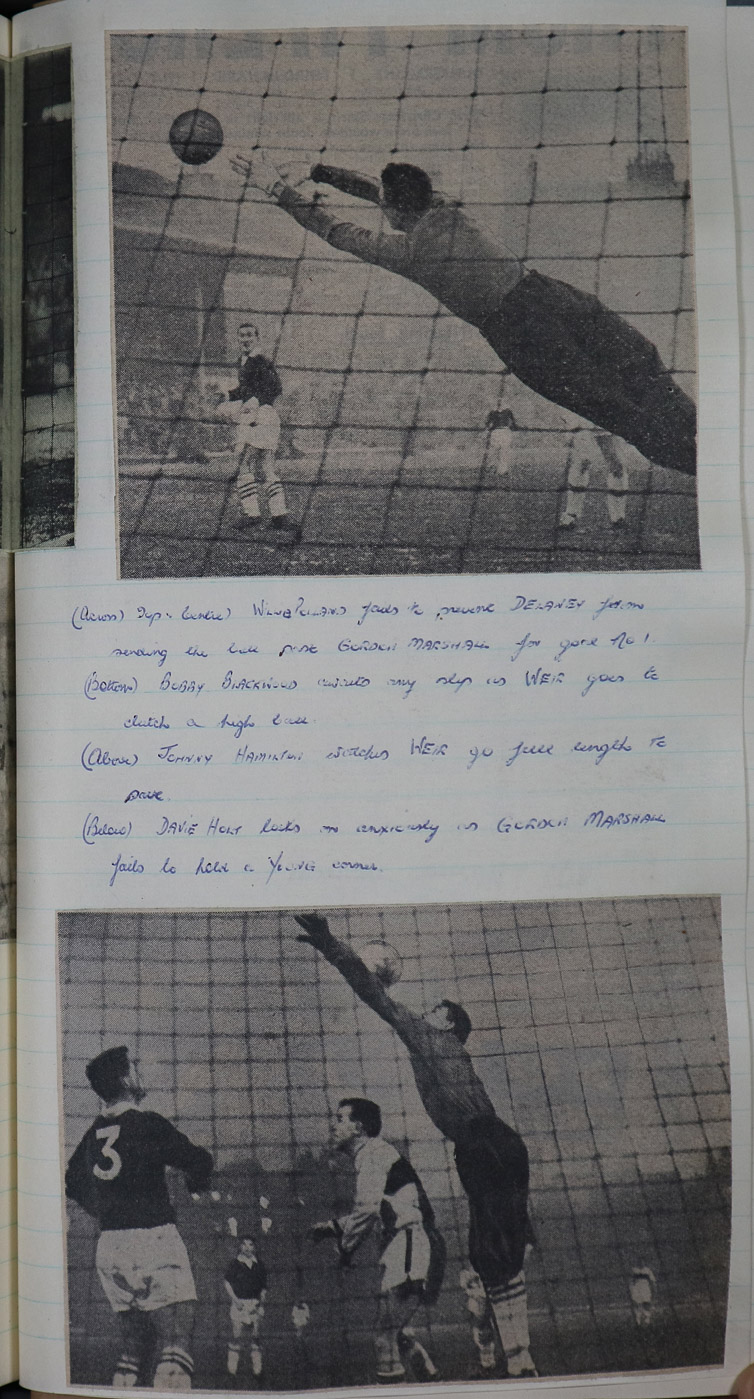 (Across) Top: Centre) WILLIE POLLAND fails to prevent DELANEY from
sending the ball past GORDON MARSHALL for goal No 1.
(Bottom) BOBBY BLACKWOOD awaits any slip as WEIR goes to
clutch a high ball.
(Above) JOHNNY HAMILTON watches WEIR go full length to
save.
(Below) DAVIE HOLT looks on anxiously as GORDON MARSHALL
fails to hold a YOUNG corner.
3